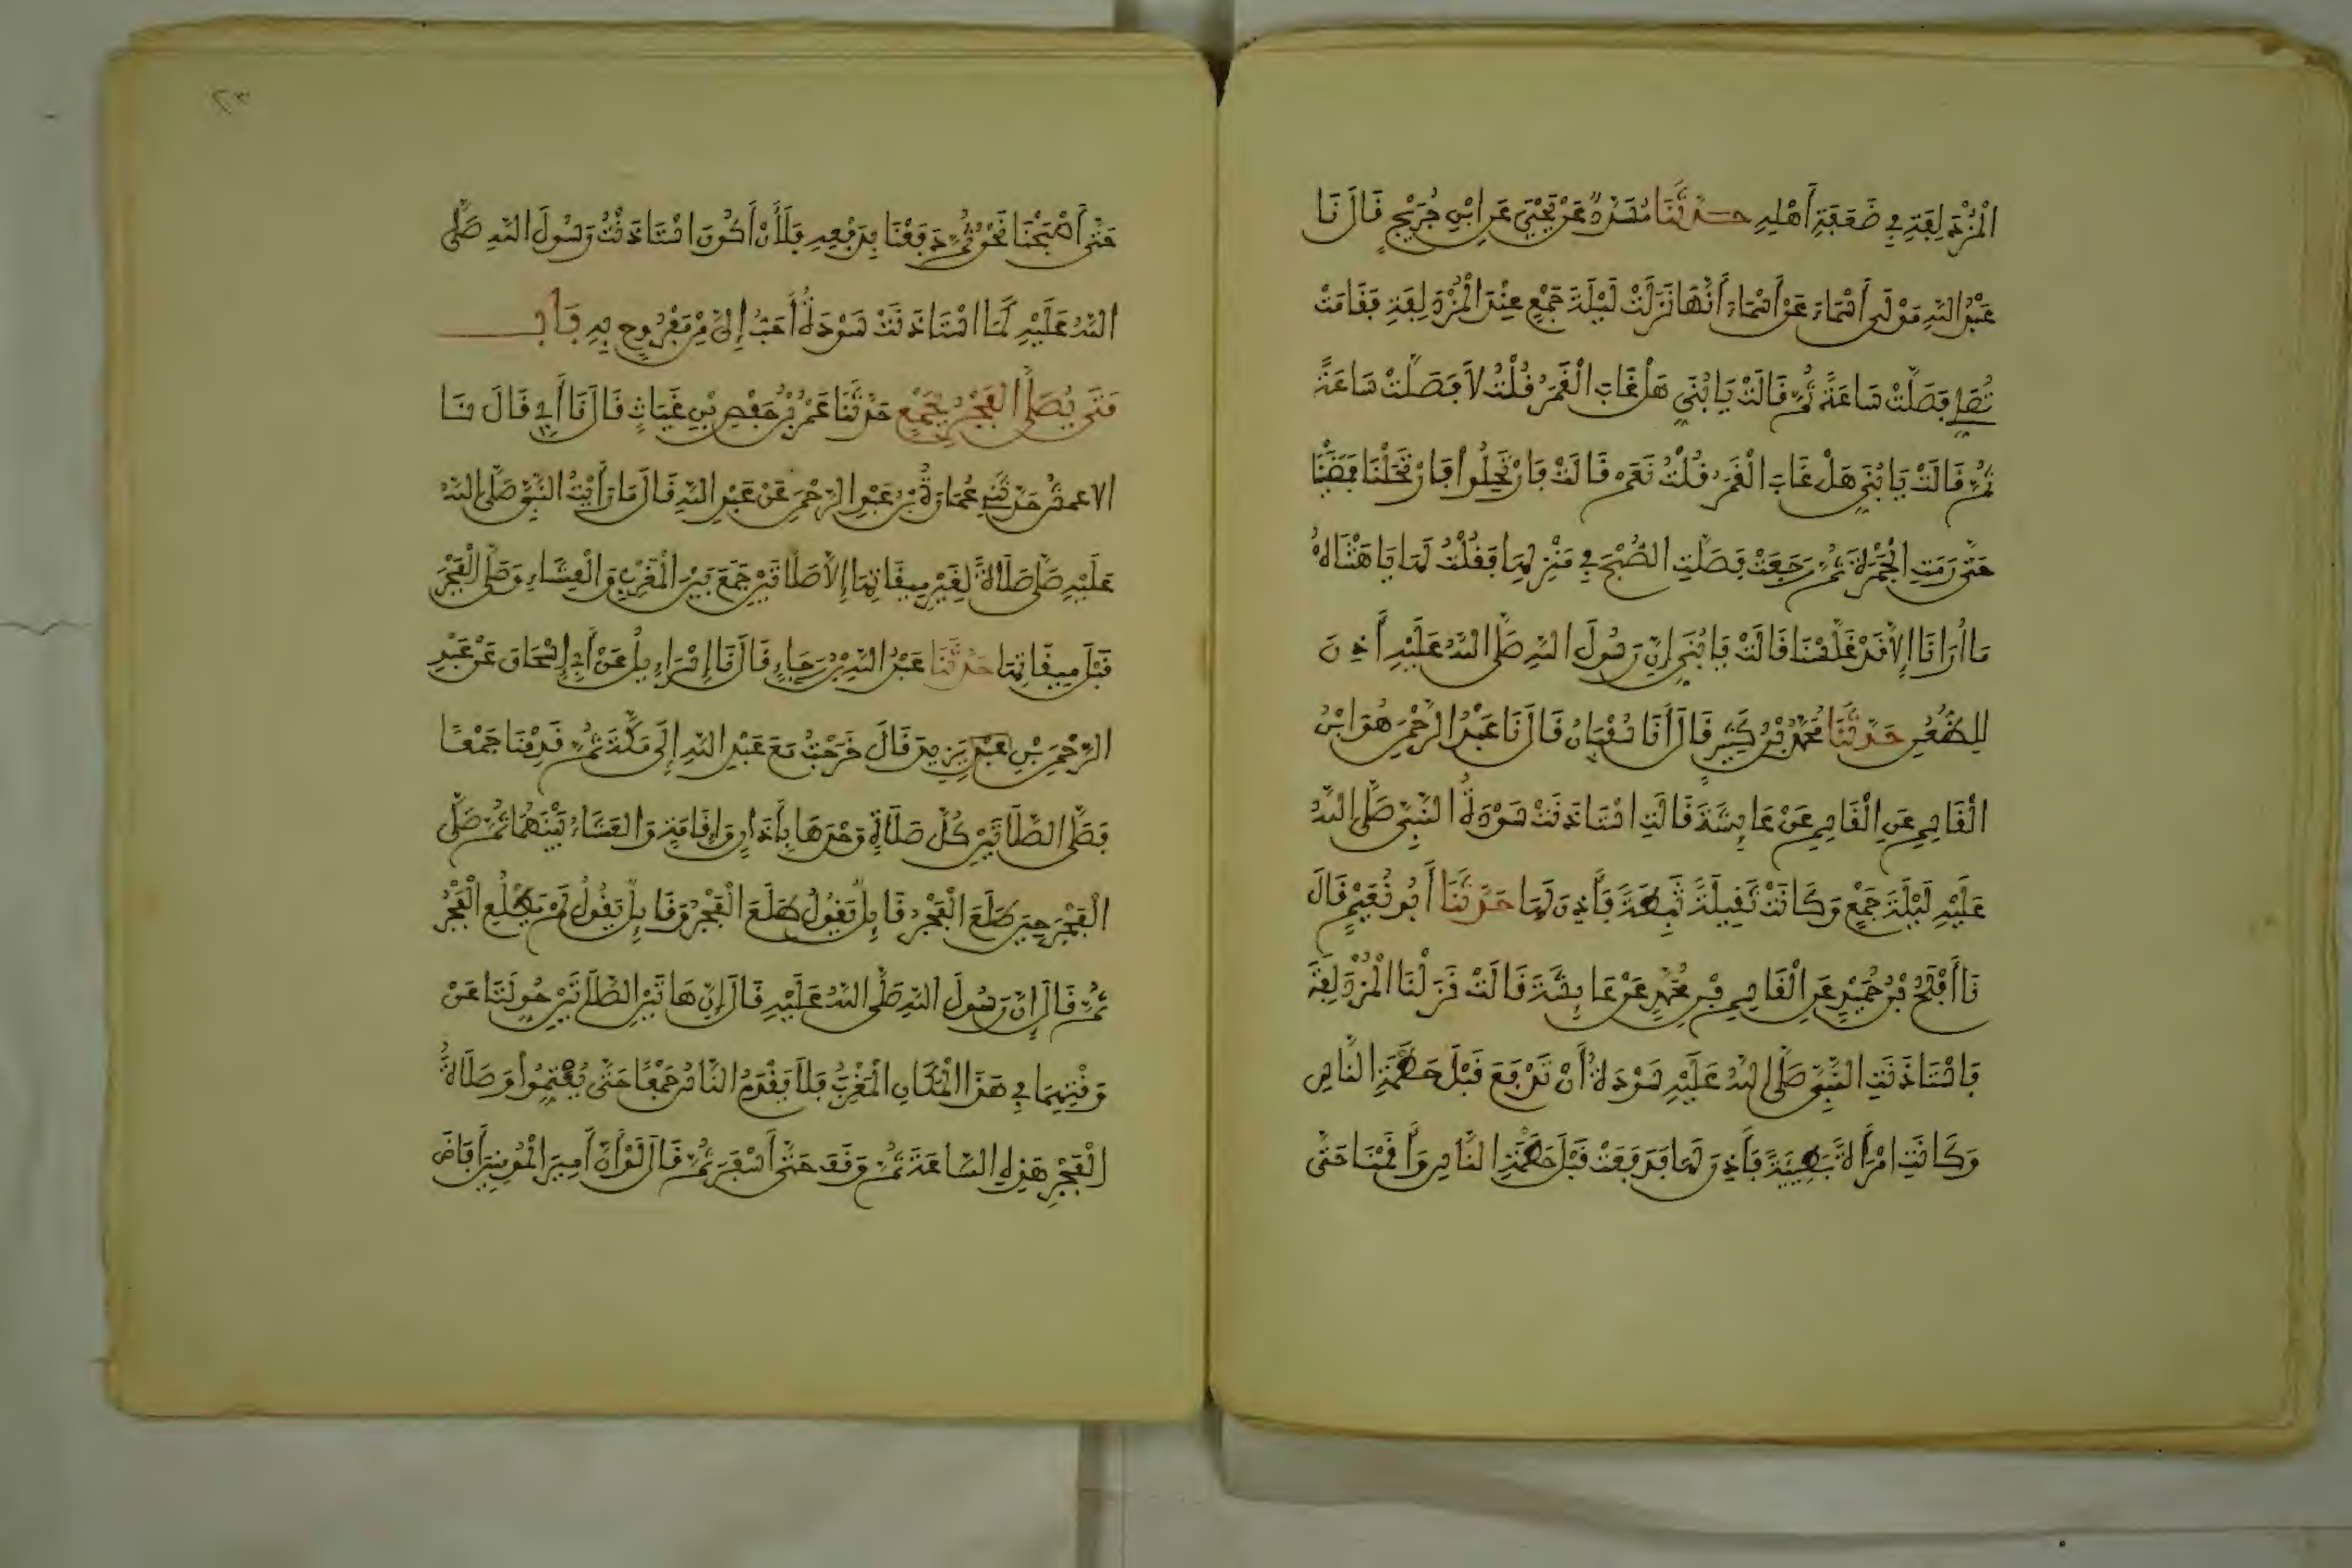 الْمُزْدَلِفَةِ فِي ضَعَفَةِ أَهْلِهِ حَدَّثَنَا مُسَدَّدٌ عَنْ يَحْيَى عَنِ ابْنِ جُرَيْجٍ قَالَ نَا
عَبْدُ اللهِ مَوْلَى أَسْمَاءَ عَنْ أَسْمَاءَ أَنَّهَا نَزَلَتْ لَيْلَةَ جَمْعٍ عِنْدَ الْمُزْدَلِفَةِ فَقَامَتْ
تُصَلِّي فَصَلَّتْ سَاعَةً ثُمَّ قَالَتْ يَا بُنَيِّ هَلْ غَابَ الْقَمَرُ قُلْتُ لَا فَصَلَّتْ سَاعَةً
ثُمَّ قَالَتْ يَا بُنَيِّ هَلْ غَابَ الْقَمَرُ قُلْتُ نَعَمْ قَالَتْ فَارْتَحِلُوا فَارْتَحَلْنَا فَمَضَيْنَا
حَتَّى رَمَتِ الْجَمْرَةَ ثُمَّ رَجَعَتْ فَصَلَّتِ الصُّبْحَ فِي مَنْزِلِهَا فَقُلْتُ لَهَا يَا هَنْتَاهُ
مَا أُرَانَا إِلَّا قَدْ غَلَّسْنَا قَالَتْ يَا بُنَيِّ إِنَّ رَسُولَ اللهِ صَلَّى اللهُ عَلَيْهِ أَذِنَ
لِلظُّعُنِ حَدَّثَنَا مُحَمَّدُ بْنُ كَثِيرٍ قَالَ أَنَا سُفْيَانُ قَالَ نَا عَبْدُ الرَّحْمَنِ هُوَ ابْنُ
الْقَاسِمِ عَنِ الْقَاسِمِ عَنْ عَائِشَةَ قَالَتِ اسْتَاذَنَتْ سَوْدَةُ النَّبِيَّ صَلَّى اللهُ
عَلَيْهِ لَيْلَةَ جَمْعٍ وَكَانَتْ ثَقِيلَةً ثَبِطَةً فَأَذِنَ لَهَا حَدَّثَنَا أَبُو نُعَيْمٍ قَالَ
نَا أَفْلَحُ بْنُ حُمَيْدٍ عَنِ الْقَاسِمِ بْنِ مُحَمَّدٍ عَنْ عَائِشَةَ قَالَتْ نَزَلْنَا الْمُزْدَلِفَةَ
فَاسْتَاذَنَتِ النَّبِيَّ صَلَّى اللهُ عَلَيْهِ سَوْدَةُ أَنْ تَدْفَعَ قَبْلَ حَطْمَةِ النَّاسِ
وَكَانَتِ امْرَأَةً بَطِيئَةً فَأَذِنَ لَهَا فَدَفَعَتْ قَبْلَ حَطْمَةِ النَّاسِ وَأَقَمْنَا حَتَّى
٢٣
حَتَّى أَصْبَحْنَا نَحْنُ ثُمَّ دَفَعْنَا بِدَفْعِهِ فَلَأَنْ أَكُونَ اسْتَاذَنْتُ رَسُولَ اللهِ صَلَّى
اللهُ عَلَيْهِ كَمَا اسْتَاذَنَتْ سَوْدَةُ أَحَبُّ إِلَيَّ مِنْ مَفْرُوحٍ بِهِ بَابُ
مَتَى يُصَلَّى الْفَجْرُ بِجَمْعٍ حَدَّثَنَا عُمَرُ بْنُ حَفْصِ بْنِ غِيَاثٍ قَالَ نَا أَبِي قَالَ نَا
الاعمش حَدَّثَنِي عُمَارَةُ بْنُ عَبْدِ الرَّحْمَنِ عَنْ عَبْدِ اللهِ قَالَ مَا رَأَيْتُ النَّبِيَّ صَلَّى اللهُ
عَلَيْهِ صَلَّى صَلَاةً لِغَيْرِ مِيقَاتِهَا إِلَّا صَلَاتَيْنِ جَمَعَ بَيْنَ الْمَغْرِبِ وَالْعِشَاءِ وَصَلَّى الْفَجْرَ
قَبْلَ مِيقَاتِهَا حَدَّثَنَا عَبْدُ اللهِ بْنُ رَجَاءٍ قَالَ نَا إِسْرَاءِيلُ عَنْ أَبِي إِسْحَاقَ عَنْ عَبْدِ
الرَّحْمَنِ بْنِ يَزِيدَ قَالَ خَرَجْتُ مَعَ عَبْدِ اللهِ إِلَى مَكَّةَ ثُمَّ قَدِمْنَا جَمْعًا
فَصَلَّى الصَّلَاتَيْنِ كُلَّ صَلَاةٍ وَحْدَهَا بِأَذَانٍ وَإِقَامَةٍ وَالْعَشَاءُ بَيْنَهُمَا ثُمَّ صَلَّى
الْفَجْرَ حِينَ طَلَعَ الْفَجْرُ قَائِلٌ يَقُولُ طَلَعَ الْفَجْرُ وَقَائِلٌ يَقُولُ لَمْ يَطْلُعِ الْفَجْرُ
ثُمَّ قَالَ إِنَّ رَسُولَ اللهِ صَلَّى اللهُ عَلَيْهِ قَالَ إِنَّ هَاتَيْنِ الصَّلَاتَيْنِ حُوِّلَتَا عَنْ
وَقْتِهِمَا فِي هَذَا الْمَكَانِ الْمَغْرِبُ فَلَا يَقْدَمُ النَّاسُ جَمْعًا حَتَّى يُعْتِمُوا وَصَلَاةُ
الْفَجْرِ هَذِهِ السَّاعَةَ ثُمَّ وَقَفَ حَتَّى أَسْفَرَ ثُمَّ قَالَ لَوْ أَنَّ أَمِيرَ الْمُؤْمِنِينَ أَفَاضَ